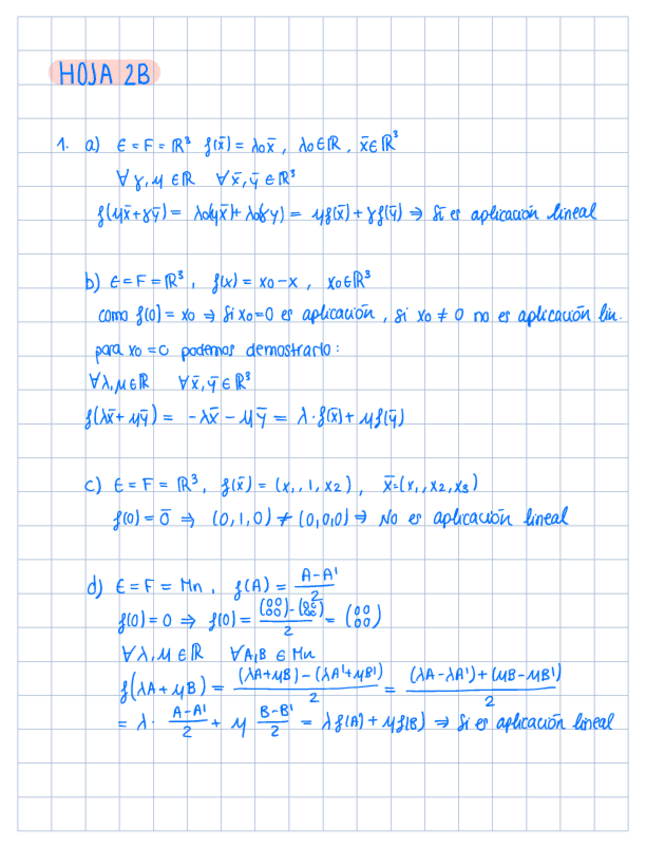 HOJA 2B
1. a) E = F = ℝ³ f(x̄) = λ₀x̄, λ₀ ∈ ℝ, x̄ ∈ ℝ³
∀ γ, μ ∈ ℝ ∀ x̄, ȳ ∈ ℝ³
f(μx̄+γȳ) = λ₀(μx̄)+λ₀(γy) = μf(x̄) + γf(ȳ) ⇒ Si es aplicación lineal
b) E = F = ℝ³, f(x) = x₀-x, x₀ ∈ ℝ³
como f(0) = x₀ ⇒ Si x₀=0 es aplicación, si x₀ ≠ 0 no es aplicación lin.
para x₀ = 0 podemos demostrarlo:
∀ λ, μ ∈ ℝ ∀ x̄, ȳ ∈ ℝ³
f(λx̄ + μȳ) = -λx̄ - μȳ = λ·f(x̄) + μf(ȳ)
c) E = F = ℝ³, f(x̄) = (x₁, 1, x₂), x̄=(x₁, x₂, x₃)
f(0) = 0̄ ⇒ (0,1,0) ≠ (0,0,0) ⇒ No es aplicación lineal
d) E = F = Mn, f(A) = (A-A')/2
f(0) = 0 ⇒ f(0) = ((0 0 / 0 0) - (0 0 / 0 0))/2 = (0 0 / 0 0)
∀ λ, μ ∈ ℝ ∀ A,B ∈ Mn
f(λA + μB) = ((λA+μB) - (λA'+μB'))/2 = ((λA-λA') + (μB-μB'))/2
= λ · (A-A')/2 + μ (B-B')/2 = λf(A) + μf(B) ⇒ Si es aplicación lineal